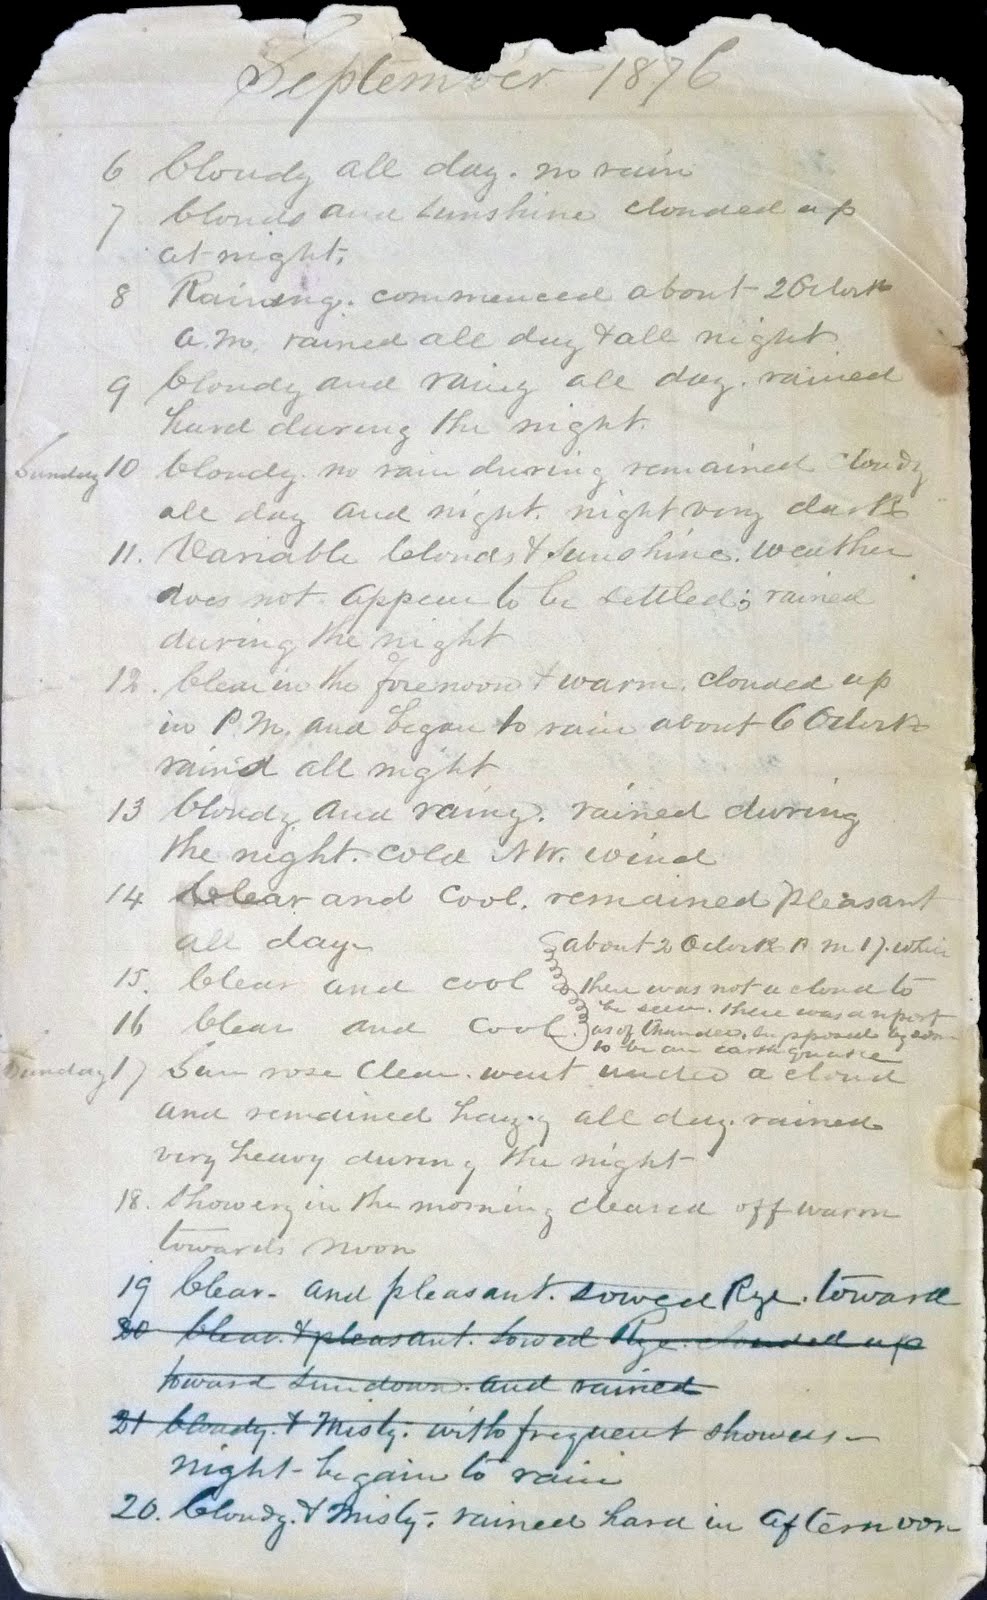 September 1876
6 Cloudy all day. no rain
7 Clouds and sunshine clouded up
at night.
8 Raining. commenced about 2 Oclock
A.M. rained all day & all night
9 Cloudy and rainy all day. rained
hard during the night.
Sunday 10 Cloudy. no rain during remained cloudy
all day and night. night very dark
11. Variable Clouds & Sunshine. weather
does not appear to be settled; rained
during the night
12. Clear in the forenoon & warm. clouded up
in P.M. and began to rain about 6 Oclock
rained all night
13 Cloudy and rainy. rained during
the night. cold N.W. wind
14 Clear and cool. remained pleasant
all day
15. Clear and cool
16 Clear and cool.
about 2 Oclock P M 17. while
there was not a cloud to
be seen. there was a report
as of thunder. supposed by some
to be an earthquake
Sunday 17 Sun rose clear. went under a cloud
and remained hazy all day. rained
very heavy during the night
18. Showery in the morning cleared off warm
towards noon
19 Clear- and pleasant. sowed Rye. toward
20 Clear. & pleasant. sowed Rye. clouded up
toward sundown. and rained
21 Cloudy. & Misty. with frequent showers-
night-begain to rain
20. Cloudy. & Misty-. rained hard in afternoon